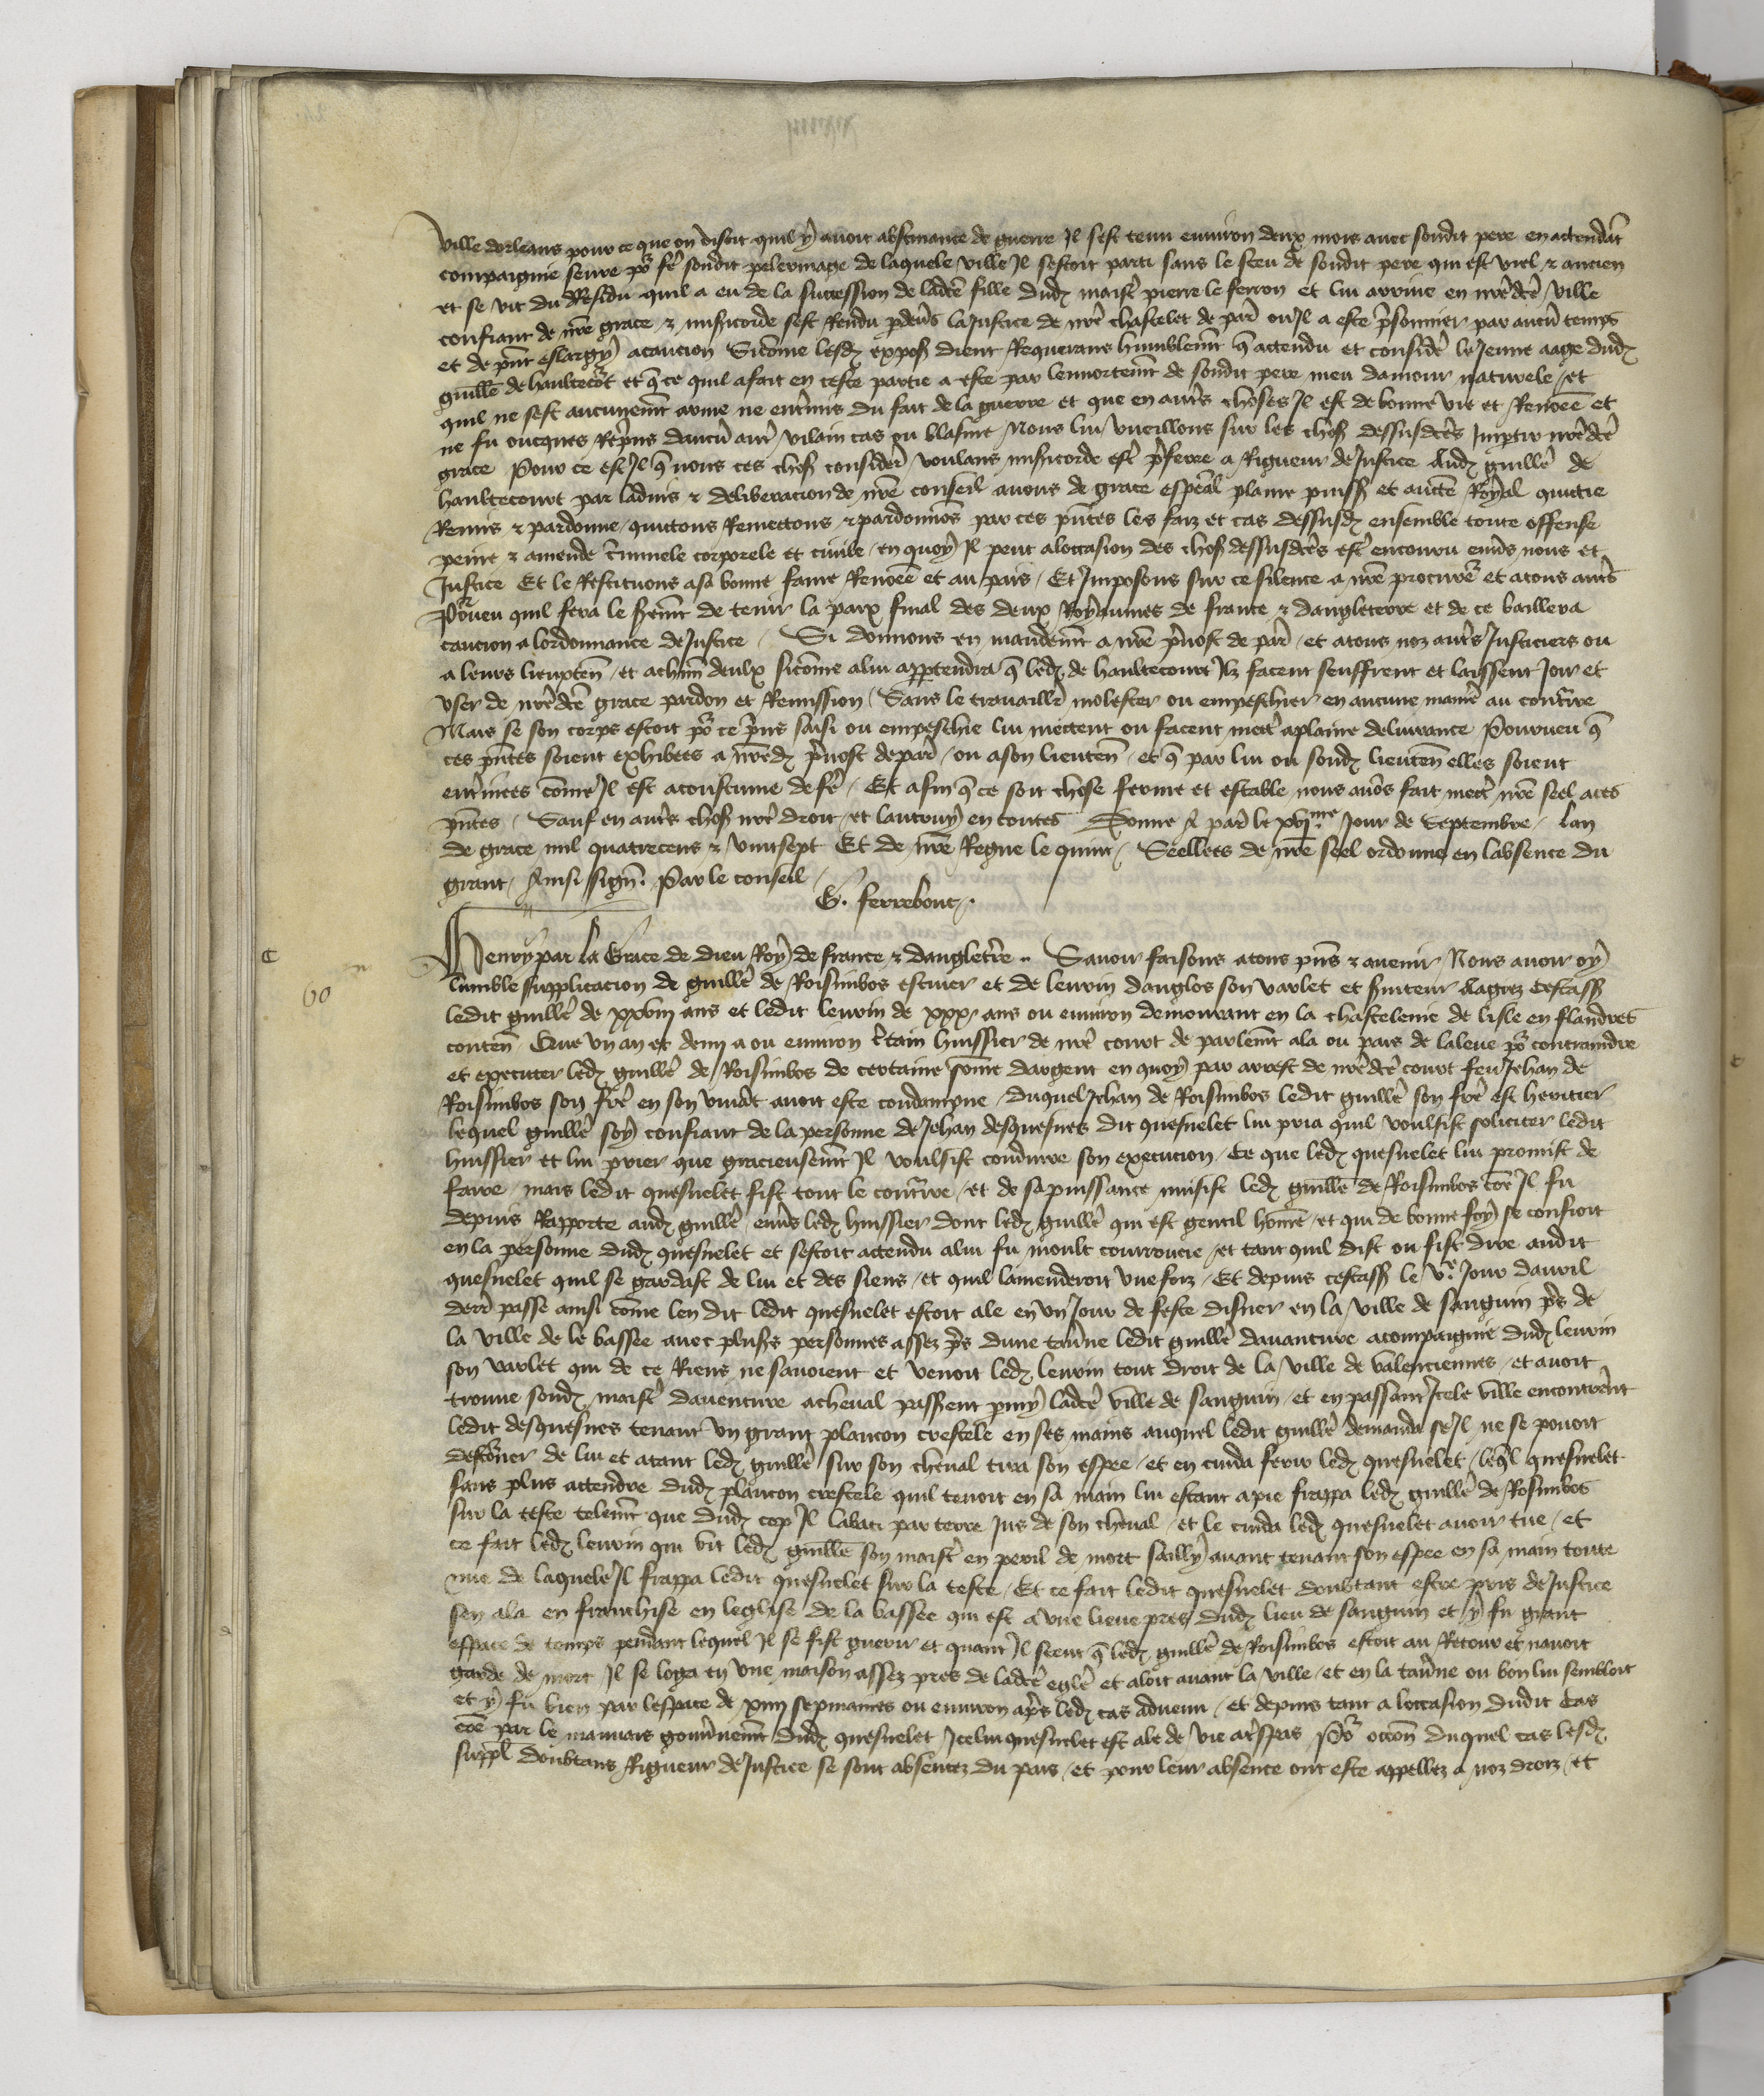 ville dorleans pour ce que on disoit quil y auoit abstinance de guerre Il sest tenu enuiron deux mois auec sondit pere en actendāt
compaignie seure por fẽ sondit pelermage de laquele ville Il sestoit parti sans le sceu de sondit pere qui est viel & ancien
et se vit du Residu quil a eu de la succession de ladcẽ fille dudz maistẽ pierre le ferron et lui arriue en nrẽdcẽ ville
confiant de nrẽ grace & misericorde sest Rendu pdeũs la Justice de nrẽ chastelet de par̃ ou Il a este p̃sonnier par aucũ temps
et de pñt eslargy a caucion Sicom̃e lesdz expoß dient Requerans humblemt̃ q̃ actendu et consider̃ le Jeune aage dudz
guillẽ de haultecot̃ et q̃ ce quil a fait en ceste partie a este par lennortemt̃ de sondit pere meu damour naturele et
quil ne sest aucunemt̃ arme ne entrmis du fait de la guerre et que en autr̃s choses Il est de bonne vie et Renom̃ee et
ne fu oncques Rep̃ns daucũ autr̃ vilain cas ou blasme Nous lui vueillons sur les choß dessusdcẽs Imptir nrẽdcẽ
grace Pour ce est Il q̃ nous ces choß consider̃ voulans miß̃icorde estr̃ p̃feree a Rigueur de Justice Audz guillẽ de
haultecourt par laduis & deliberacion de nrẽ conseil auons de grace esp̃cal plaine puissß et auctẽ Royal quictie
Remis & pardonne quictons Remectons & pardonnõs par ces pñtes les faiz et cas dessusdz ensemble toute offense
peine & amende c̃minele corporele et ciuile en quoy Il peut a loccasion des choß dessusdcẽs estr̃ encouru enũs nous et
Justice Et le Restituons a sa bonne fame Renom̃ee et au pais Et Imposons sur ce silence a nrẽ procurer̃ et a tous autr̃s
Porueu quil fera le ßemt̃ de tenir la paix final des deux Royaumes de france & dangleterre et de ce baillera
caucion a lordonnance de Justice Si donnons en mandemt̃ a nrẽ p̃uost de par̃ et a tous noz autr̃s Justiciers ou
a leurs lieuxteñ et a chũn deulx sicom̃e a lui apptendra q̃ ledz de haultecourt Ilz facent seuffrent et laissent Joir et
vser de nrẽdcẽ grace pardon et Remission Sans le trauaillẽ molester ou empeschier en aucune manier̃ au contr̃ire
Mais se son corps estoit por ce p̃ns saisi ou empeschie lui mectent ou facent mectr̃ a plaine deliurance Pourueu q̃
ces pñtes soient exhibees a nrẽdz p̃uost de par̃ ou a son lieuteñ et q̃ par lui ou sondz lieuteñ elles soient
entr̃inees com̃e Il est acoustume de fẽ Et afin q̃ ce soit chose ferme et estable nous auõs fait mectr̃ nrẽ seel a ces
pñtes Sauf en autr̃s choß nrẽ droit et lautruy en toutes Donne A par̃ le xvjme Jour de Septembre Lan
de grace mil quatrecens & vintsept Et de nrẽ Regne le quint Seellees de nrẽ seel ordonne en labsence du
grant Ainsi signe. Par le conseil
G. ferrebouc.
Henry par la Grace de dieu Roy de france & dangletrẽ Sauoir faisons a tous pñs & auenir Nous auoir oy
lumble supplicacion de guillẽ de Roisimbos escuier et de leurin danglos son varlet et ßuiteur Aagiez cestassß
ledit guillẽ de xxviij ans et ledit leurin de xxx ans ou enuiron demourant en la chastelenie de lisle en flandres
conteñ Que vn an et demi a ou enuiron c̃tain huissier de nrẽ court de parlemt̃ ala ou pais de laleue por contraindre
et executer ledz guillẽ de Roisimbos de certaine som̃e dargent en quoy par arrest de nrẽdcẽ court feu Jehan de
Roisimbos son frẽ en son viuāt auoit este condampne duquel Jehan de Roisimbos ledit guillẽ son frẽ est heritier
lequel guillẽ soy confiant de la personne de Jehan desquesnes dit quesnelet lui pria quil voulsist soliciter ledit
huissier et lui prier que gracieusemt̃ Il voulsist conduire son execucion Ce que ledz quesnelet lui promist de
faire mais ledit quesnelet fist tout le contr̃ire et de sa puissance nuisist ledz guillẽ de Roisimbos com̃e Il fu
depuis Rapporte audz guillẽ enũs ledz huissier dont ledz guillẽ qui est gentil hom̃e et qui de bonne foy se confioit
en la personne dudz quesnelet et sestoit actendu a lui fu moult courroucie et tant quil dist ou fist dire audit
quesnelet quil se gardast de lui et des siens et quil lamenderoit vne foiz Et depuis cestassß le ve Jour dauril
derr̃ passe ainsi com̃e len dit ledit quesnelet estoit ale en vn Jour de feste disner en la ville de sanguin pr̃s de
la ville de le bassee auec plusß̃s personnes assez pr̃s dune tauñe ledit guillẽ dauanture acompaignie dudz leurin
son varlet qui de ce Riens ne sauoient et venoit ledz leurin tout droit de la ville de valenciennes et auoit
trouue sondz maistr̃ dauenture a cheual passent p̃my ladcẽ ville de sanguin et en passant Icele ville encontrer̃nt
ledit desquesnes tenant vn grant plancon crestele en ses mains auquel ledit guillẽ demanda se Il ne se pouoit
 de lui et atant ledz guillẽ sur son cheual tira son espee et en cuida ferir ledz quesnelet leq̃l quesnelet
sans plus actendre dudz plancon crestele quil tenoit en sa main lui estant a pie frappa ledz guillẽ de Rosimbos
sur la teste telemt̃ que dudz cop Il labati par terre Jus de son cheual et le cuida ledz quesnelet auoir tue et
ce fait ledz leurin qui vit ledz guillẽ son maistr̃ en peril de mort sailly auant tenant son espee en sa main toute
nue de laquele Il frappa ledit quesnelet sur la teste Et ce fait ledit quesnelet doubtant estre pris de Justice
sen ala en franchise en leglise de la bassee qui est a vne lieue pres dudz lieu de sanguin et y fu grant
espace de temps pendant lequel Il se fist guerir et quant Il sceut q̃ ledz guillẽ de Roisimbos estoit au Retour et nauoit
garde de mort Il se loga en vne maison assez pres de ladcẽ eglẽ et aloit auant la ville et en la tauñe ou bon lui sembloit
et y fu bien par lespace de xiiij sepmaines ou enuiron apr̃s ledz cas aduenu et depuis tant a loccasion dudit cas
com̃e par le mauuais gouũnemt̃ dudz quesnelet Icelui quesnelet est ale de vie a tr̃spas Por occoñ duquel cas lesdz
suppl̃ doubtans Rigueur de Justice se sont absentez du pais et pour leur absence ont este appellez a noz droiz et
60